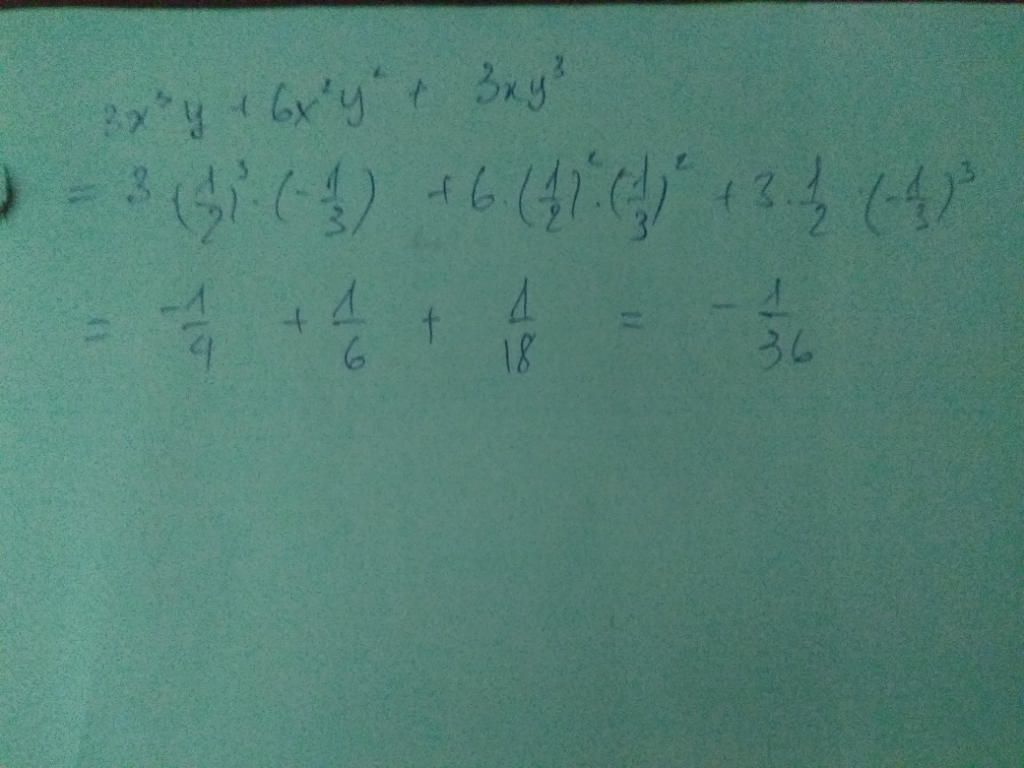 3x³y + 6x²y² + 3xy³
= 3(1/2)³·(-1/3) + 6·(1/2)²·(1/3)² + 3·1/2·(-1/3)³
= -1/4 + 1/6 + 1/18 = -1/36